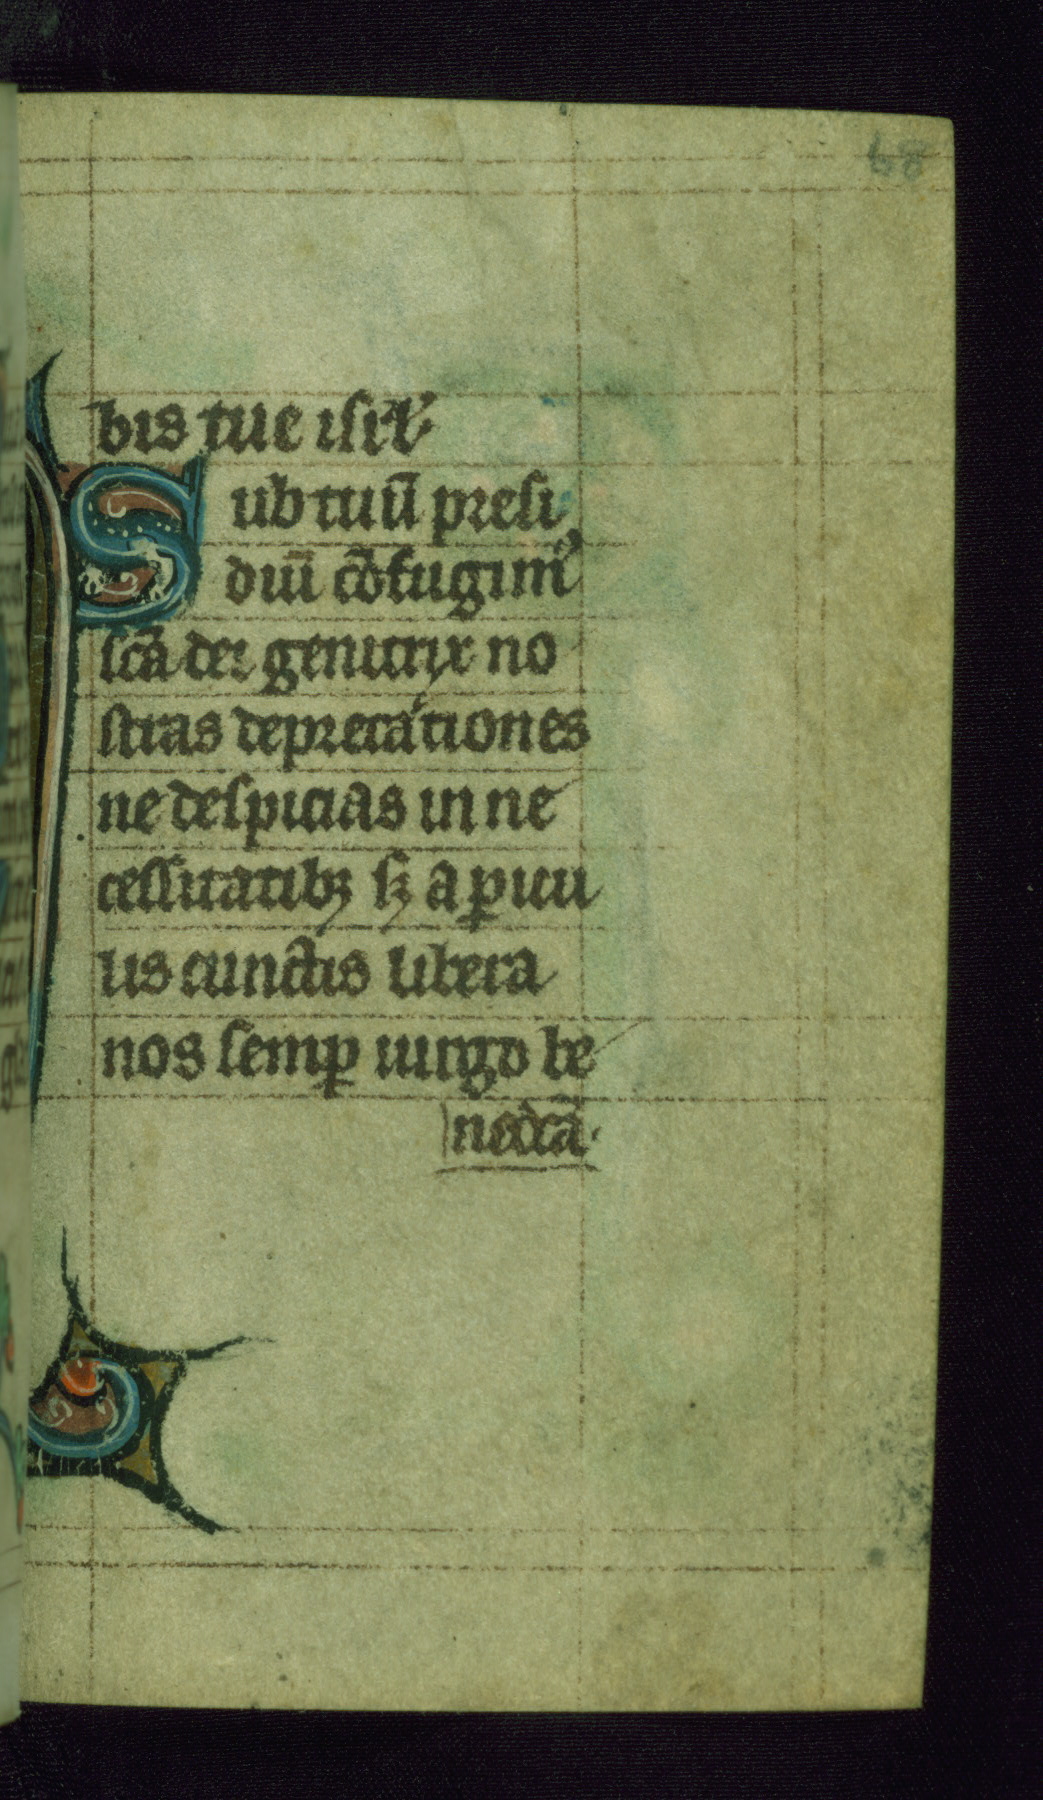 68
bis tue isrl'
Sub tuū presi
diū cōfugim'
scā dei genitrix no
stras deprecationes
ne despicias in ne
cessitatibꝫ sꝫ a ꝑicu
lis cunctis libera
nos semꝑ uirgo be
nedcā.